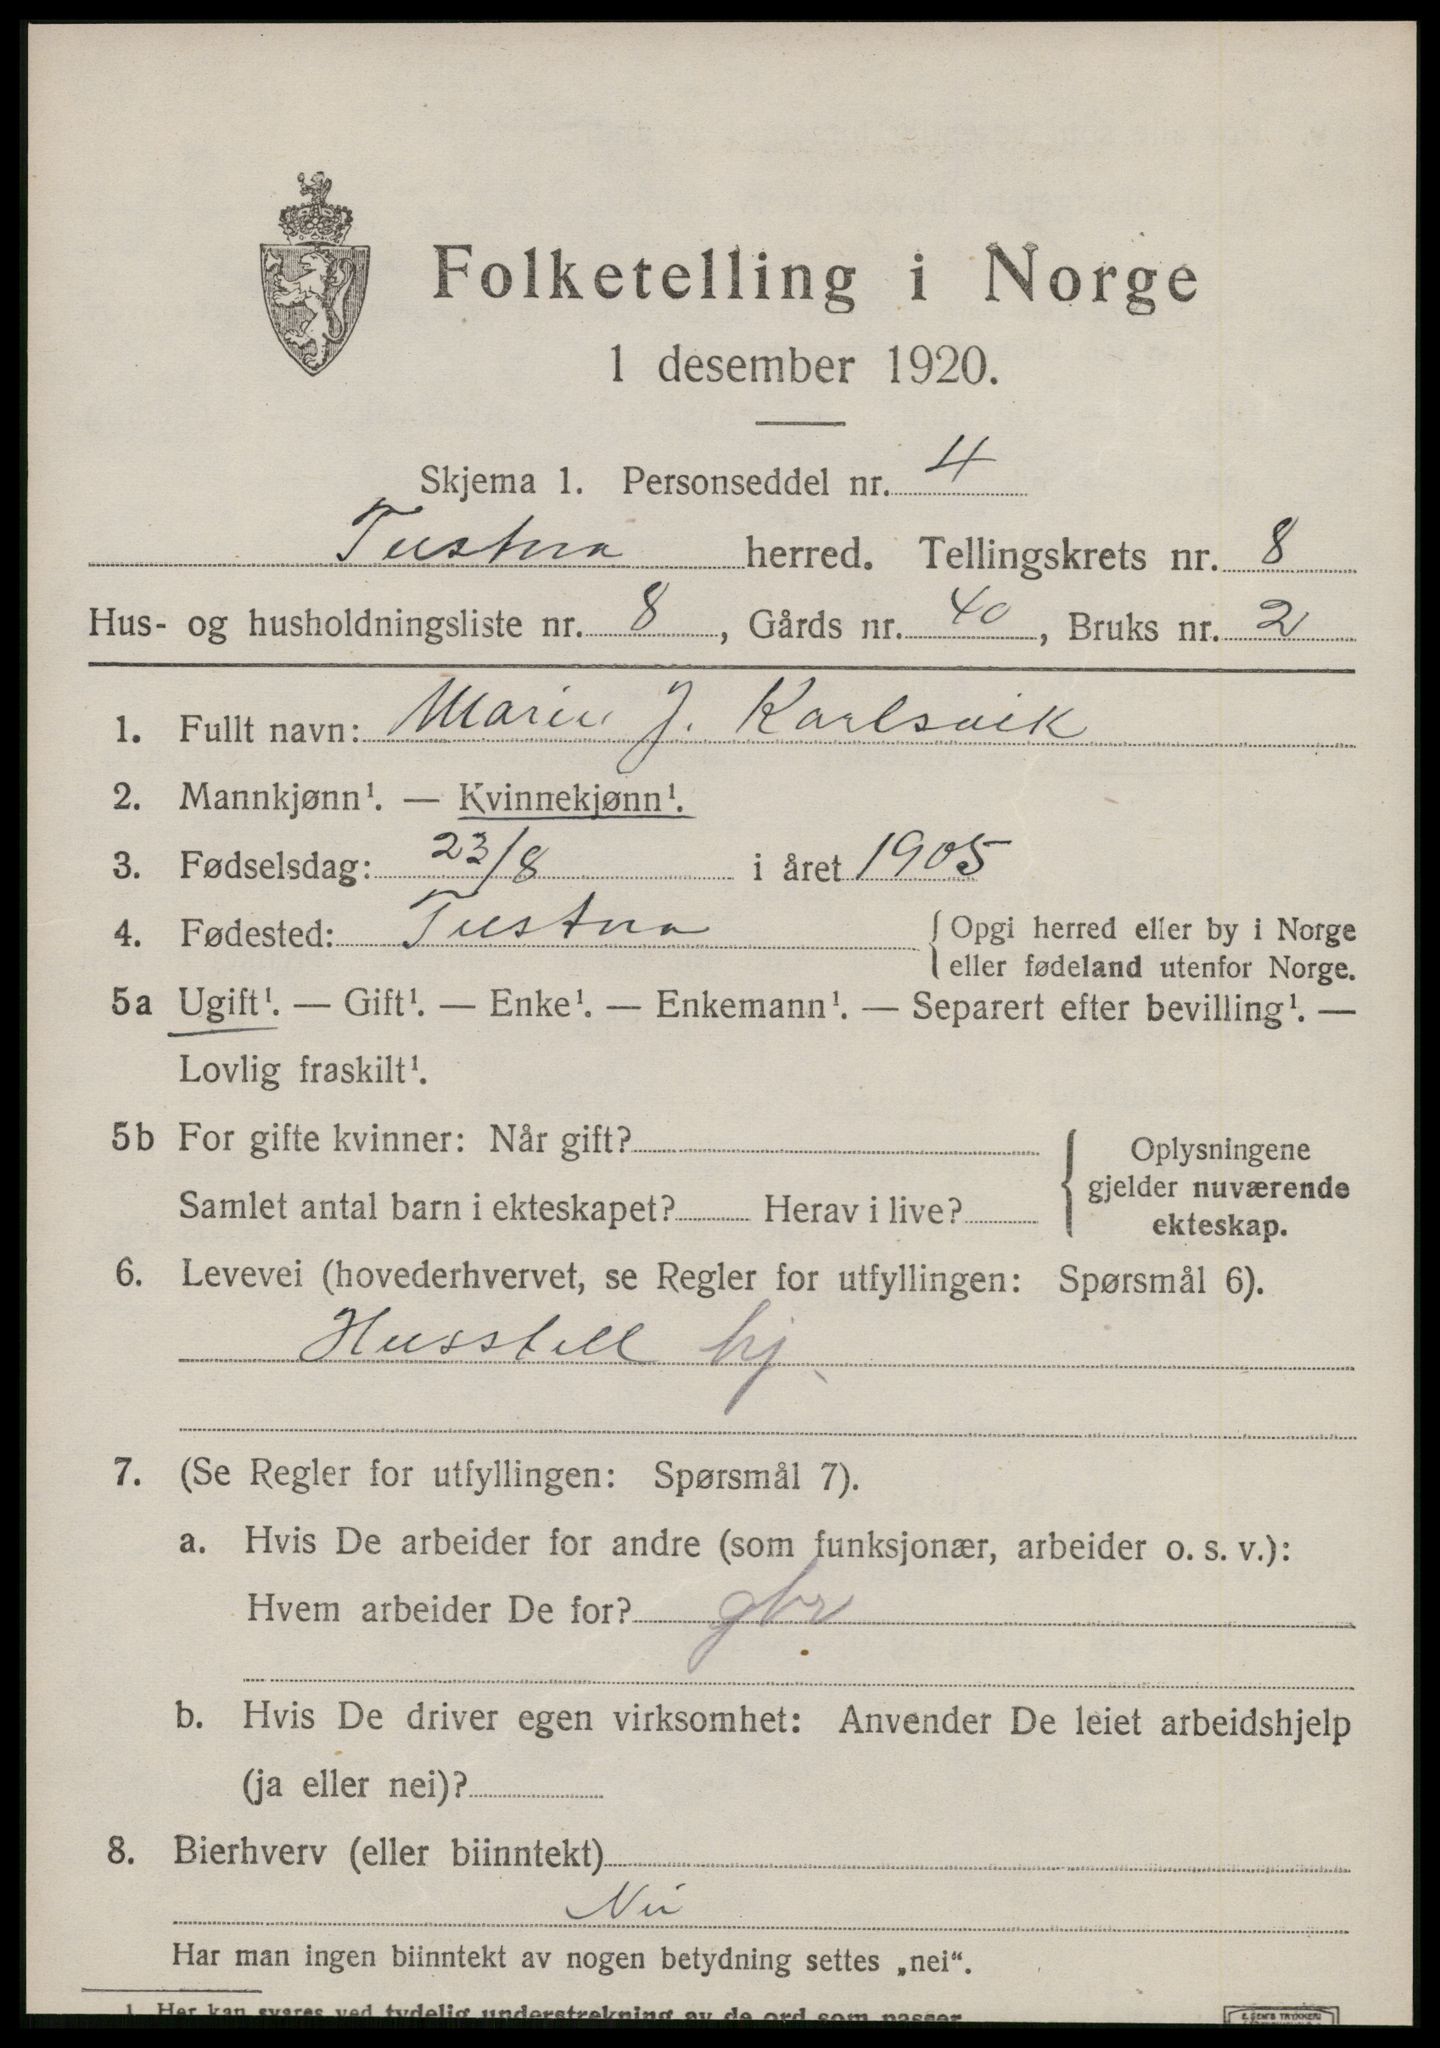 Folketelling i Norge
1 desember 1920.
Skjema 1. Personseddel nr. 4
Tustna herred. Tellingskrets nr. 8
Hus- og husholdningsliste nr. 8, Gårds nr. 40, Bruks nr. 2
1. Fullt navn: Marie J. Karlsvik
2. Mannkjønn¹. — Kvinnekjønn¹.
3. Fødselsdag: 23/8 i året 1905
4. Fødested: Tustna { Opgi herred eller by i Norge
eller fødeland utenfor Norge.
5a Ugift¹. — Gift¹. — Enke¹. — Enkemann¹. — Separert efter bevilling¹. —
Lovlig fraskilt¹.
5b For gifte kvinner: Når gift? { Oplysningene
gjelder nuværende
ekteskap.
Samlet antal barn i ekteskapet? Herav i live?
6. Levevei (hovederhvervet, se Regler for utfyllingen: Spørsmål 6).
Husstell hj
7. (Se Regler for utfyllingen: Spørsmål 7).
a. Hvis De arbeider for andre (som funksjonær, arbeider o. s. v.):
Hvem arbeider De for? gbr
b. Hvis De driver egen virksomhet: Anvender De leiet arbeidshjelp
(ja eller nei)?
8. Bierhverv (eller biinntekt)
Nei
Har man ingen biinntekt av nogen betydning settes „nei“.
1. Her kan svares ved tydelig understrekning av de ord som passer.